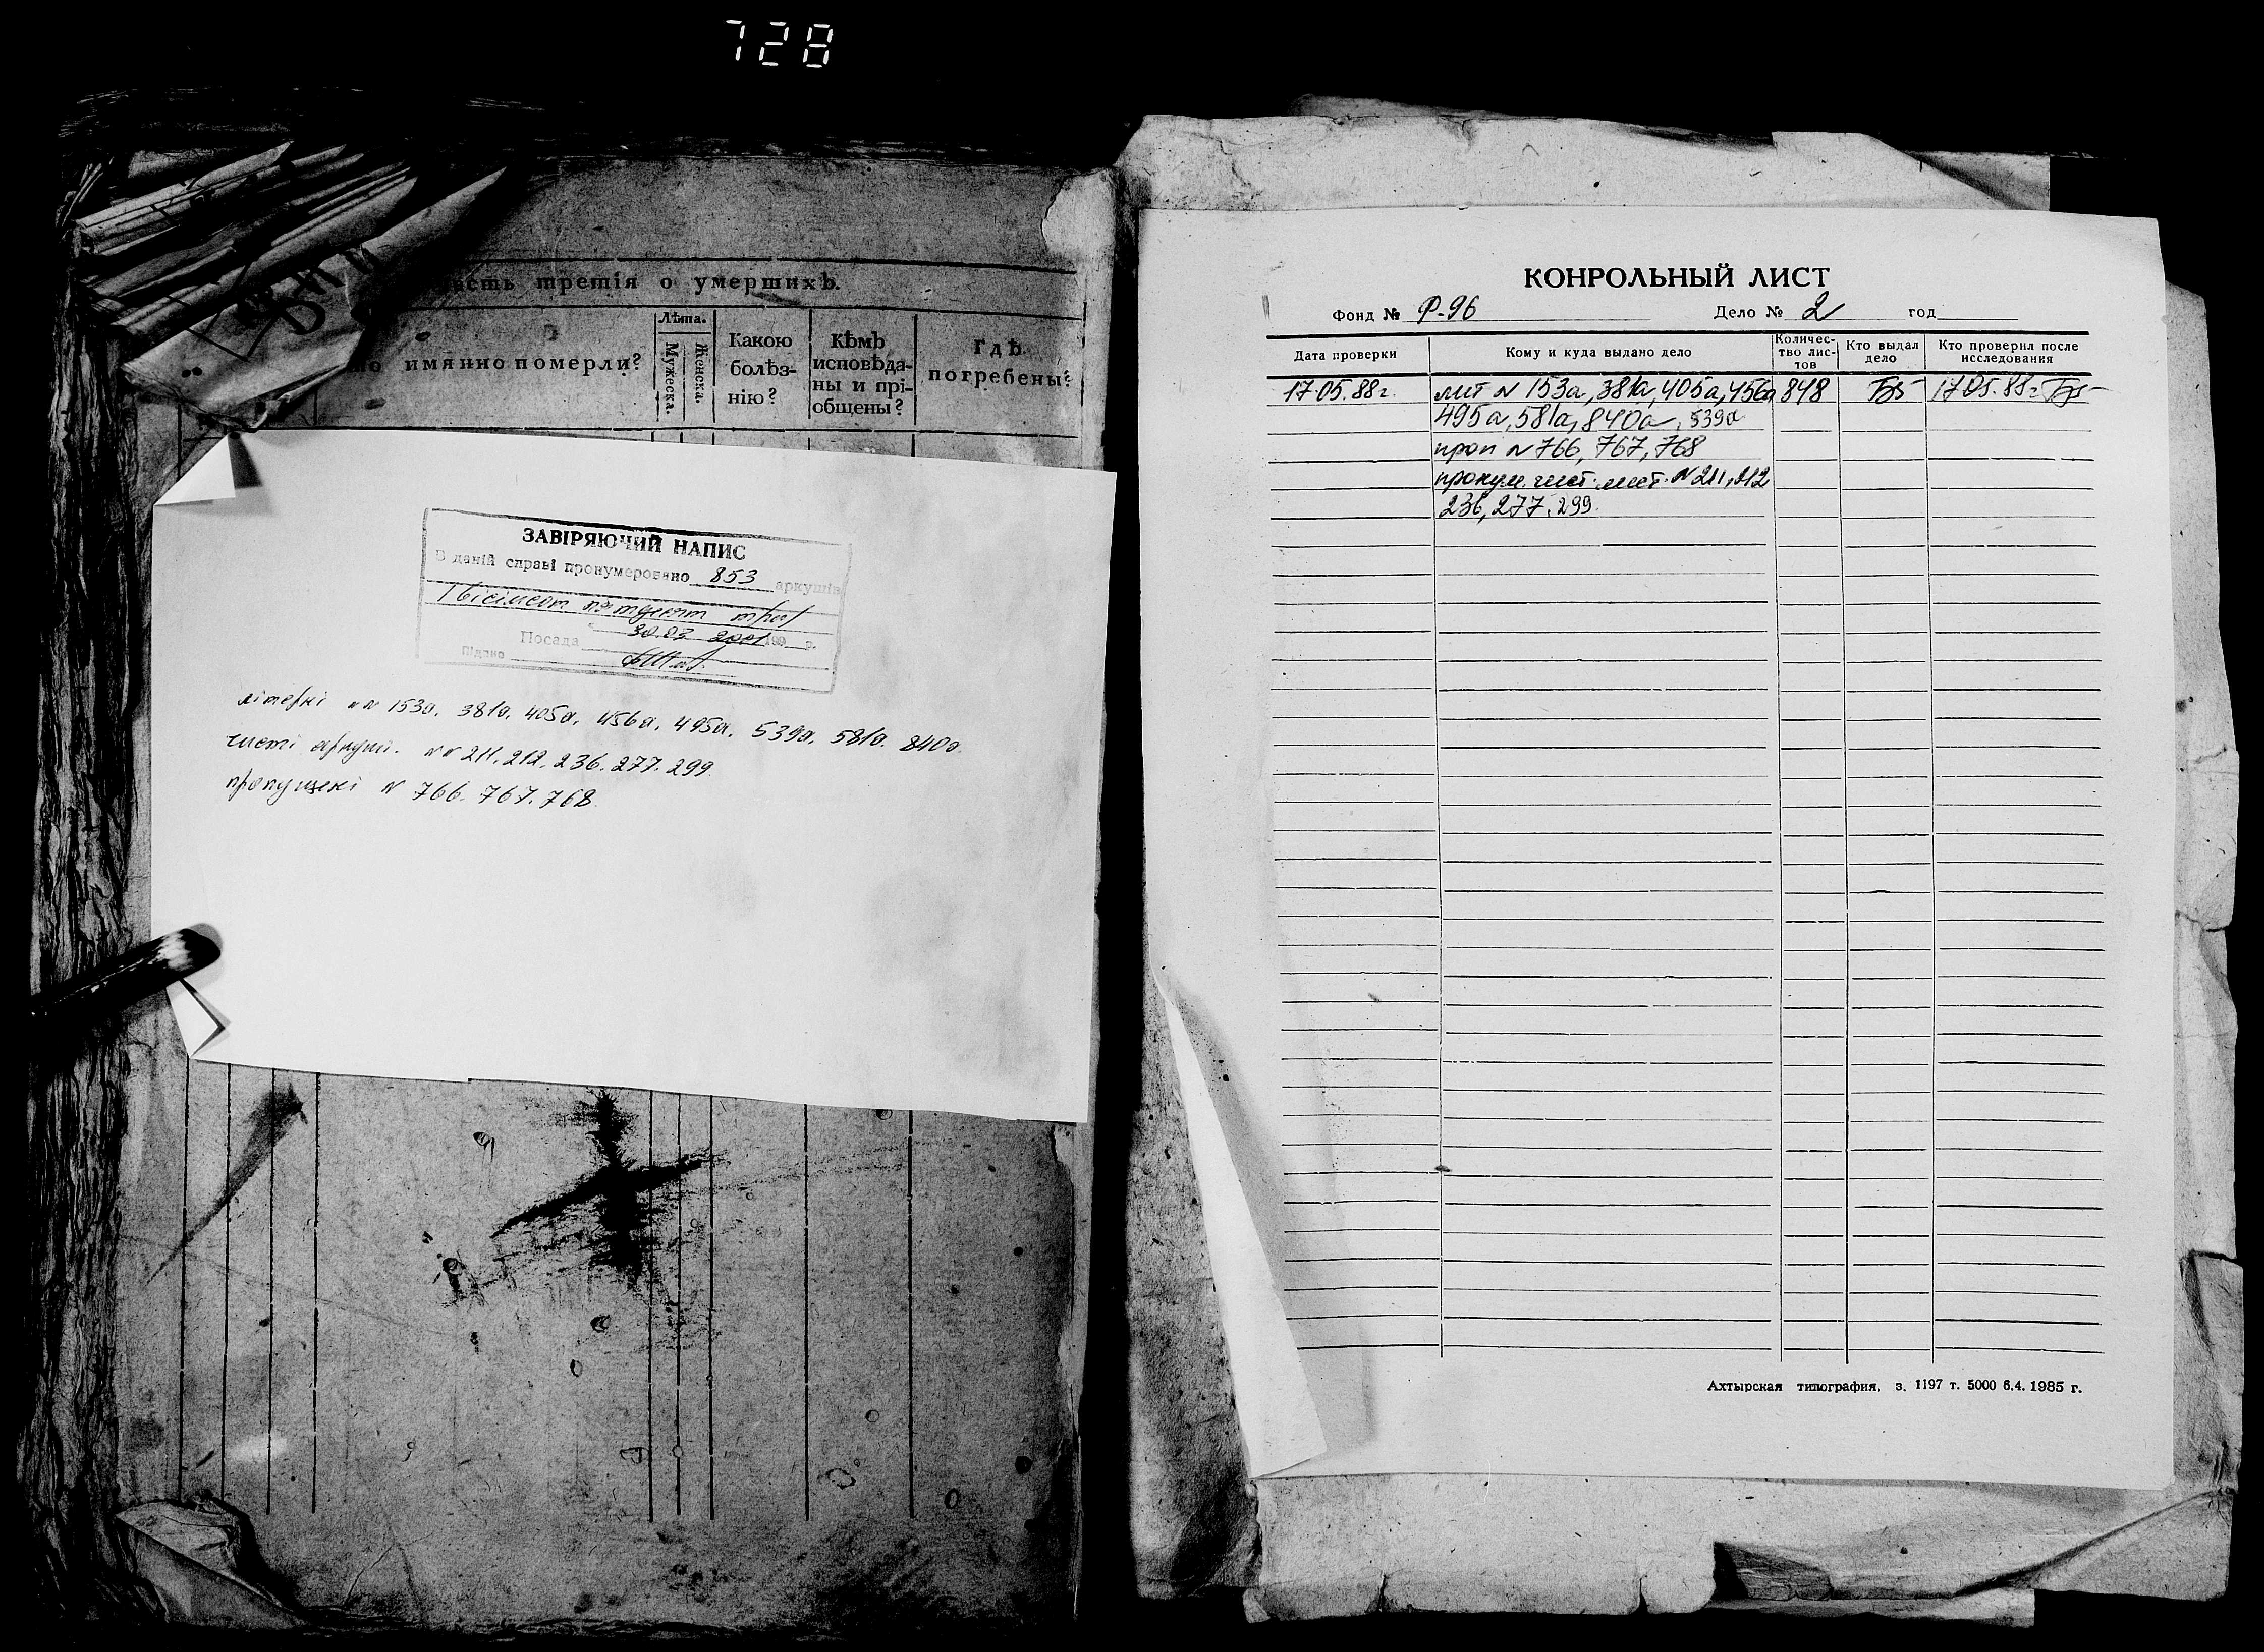 728
сть третія о умершихъ.
имянно померли?
Лѣта.
Мужеска.
Женска.
Какою
болѣз-
нію?
Кѣмъ
исповѣда-
ны и прі-
общены?
Гдѣ
погребены?
ЗАВІРЯЮЧИЙ НАПИС
В даній справі пронумеровано 853 аркушів
(вісімсот п'ятдесят три)
30.03 2001 199 р.
Посада
Підпис
літерні №№ 153а, 381а, 405а, 456а, 495а, 539а, 581а, 840а
чисті аркуші. №№ 211. 212. 236. 277. 299.
пропущені № 766. 767. 768.
КОНРОЛЬНЫЙ ЛИСТ
Фонд № Р-96 Дело № 2 год
Дата проверки
Кому и куда выдано дело
Количес-
тво лис-
тов
Кто выдал
дело
Кто проверил после
исследования
17.05.88г. лит № 153а, 381а, 405а, 456а 848 17.05.88г.
495а, 581а, 840а, 539а
проп № 766, 767, 768
пронум. чист. лист. № 211, 212
236, 277, 299.
Ахтырская типография, з. 1197 т. 5000 6.4. 1985 г.